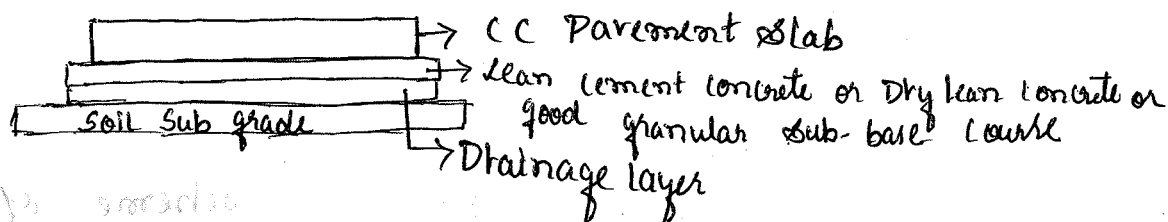 CC Pavement Slab
Lean cement concrete or Dry lean concrete or
good granular sub-base course
Soil Sub grade
Drainage layer